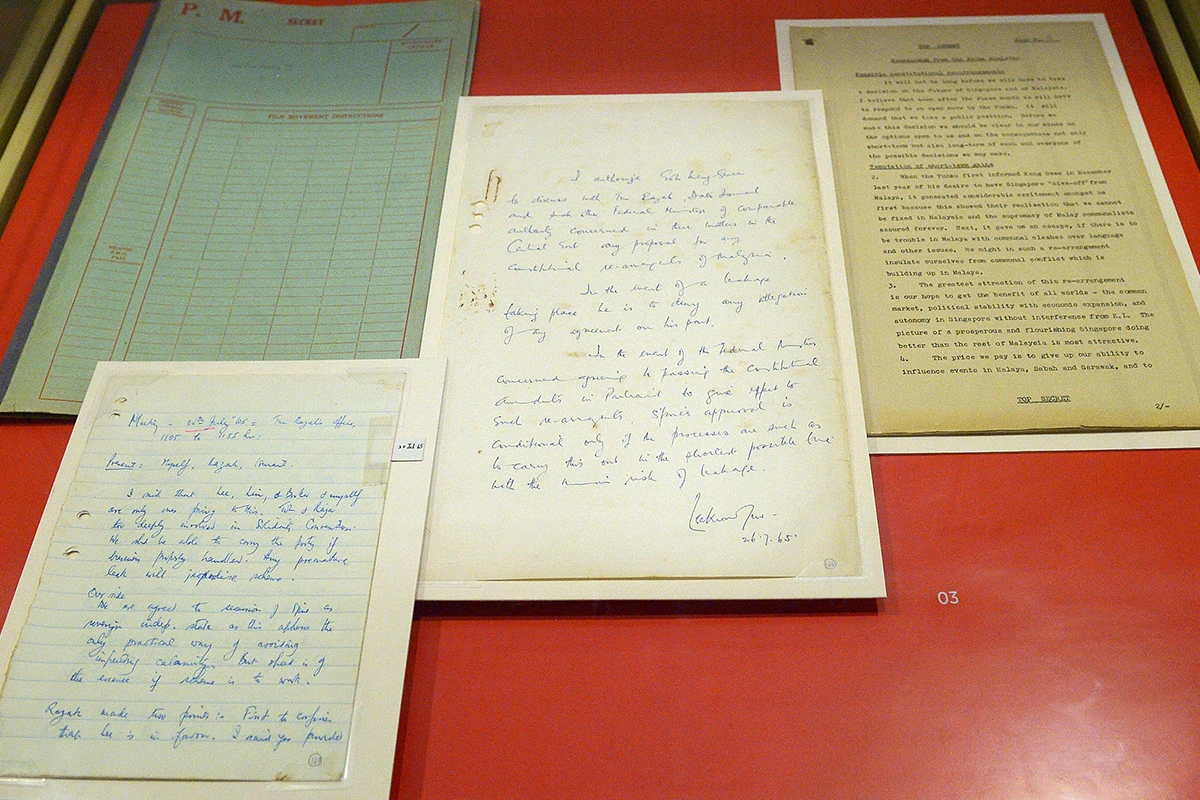 P. M.
SECRET
FILE MOVEMENT INSTRUCTIONS
Meeting - 20th July 65 = Tun Razak's Office,
1105 to 1155 hrs:
Present: Myself, Razak, Ismail.
I said that Lee, Lim, & Barker & myself
are only ones privy to this. Toh & Raja
too deeply involved in Solidarity Convention.
We shd be able to carry the party if
properly handled. Any premature
leak will jeopardise scheme.
Our side
We are agreed to secession of S'pore as
sovereign indep. state as this affords the
only practical way of avoiding
impending calamity. But speed is of
the essence if scheme is to work.
Razak made two points :- First to confirm
that Lee is in favour. I said yes provided
20 Jul 65
I authorise Goh Keng Swee
to discuss with Tun Razak, Dato Ismail
and such other Federal Ministers of comparable
authority concerned in these matters in the
Central Govt any proposal for any
constitutional re-arrangements of Malaysia.
In the event of a leakage
taking place he is to deny any allegation
of any agreement on his part.
In the event of the Federal Ministers
concerned agreeing to passing the constitutional
amendments in Parliament to give effect to
such re-arrangements, S'pore's approval is
conditional only if the processes are such as
to carry this out in the shortest possible time
with the minimum risk of leakage.
26.7.65.
TOP SECRET
Memorandum from the Prime Minister
Possible constitutional rearrangements
It will not be long before we will have to take
a decision on the future of Singapore and of Malaysia.
I believe that soon after the June month we will have
to respond to an open move by the Tunku. It will
demand that we take a public position. Before we
make this decision we should be clear in our minds on
the options open to us and on the consequences not only
short-term but also long-term of each and everyone of
the possible decisions we may make.
Temptation of short-term gains
2. When the Tunku first informed Keng Swee in December
last year of his desire to have Singapore "hive-off" from
Malaya, it generated considerable excitement amongst us
first because this showed their realisation that we cannot
be fixed in Malaysia and the supremacy of Malay communalists
assured forever. Next, it gave us an escape, if there is to
be trouble in Malaya with communal clashes over language
and other issues. We might in such a re-arrangement
insulate ourselves from communal conflict which is
building up in Malaya.
3. The greatest attraction of this re-arrangement
is our hope to get the benefit of all worlds - the common
market, political stability with economic expansion, and
autonomy in Singapore without interference from K.L. The
picture of a prosperous and flourishing Singapore doing
better than the rest of Malaysia is most attractive.
4. The price we pay is to give up our ability to
influence events in Malaya, Sabah and Sarawak, and to
TOP SECRET
2/-
03